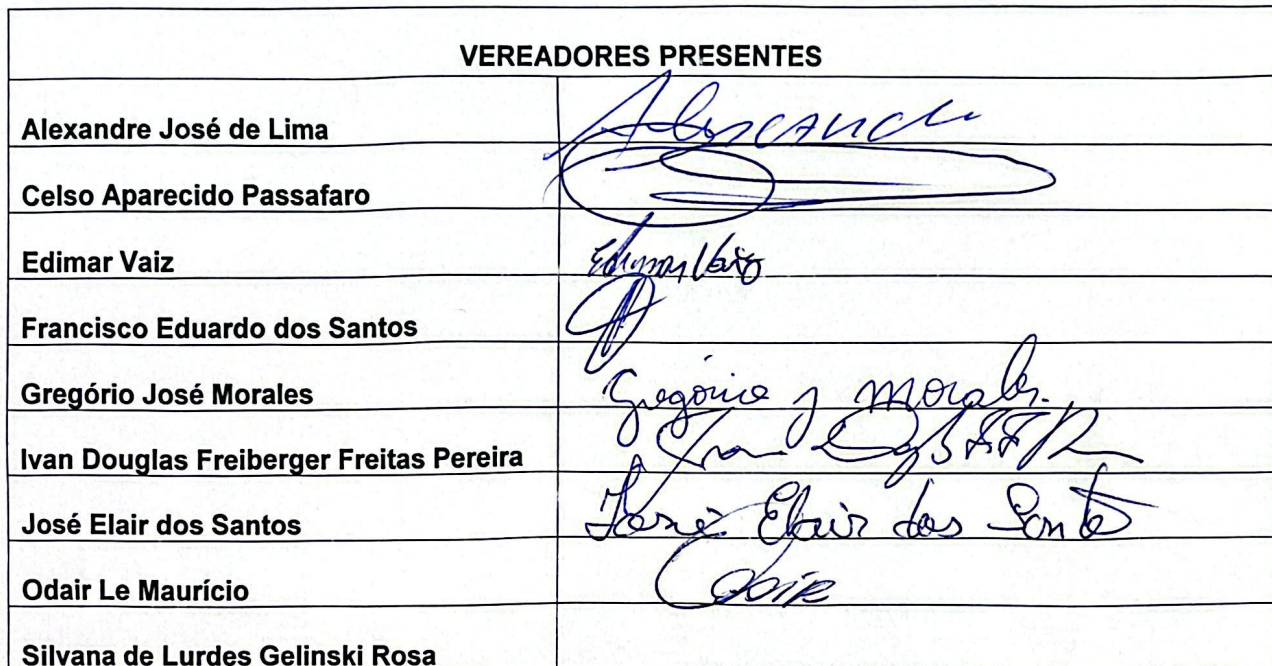 VEREADORES PRESENTES
Alexandre José de Lima Alexandre
Celso Aparecido Passafaro
Edimar Vaiz Edimar Vaiz
Francisco Eduardo dos Santos
Gregório José Morales Gregório J Morales.
Ivan Douglas Freiberger Freitas Pereira Ivan
José Elair dos Santos José Elair dos Santos
Odair Le Maurício Odair
Silvana de Lurdes Gelinski Rosa